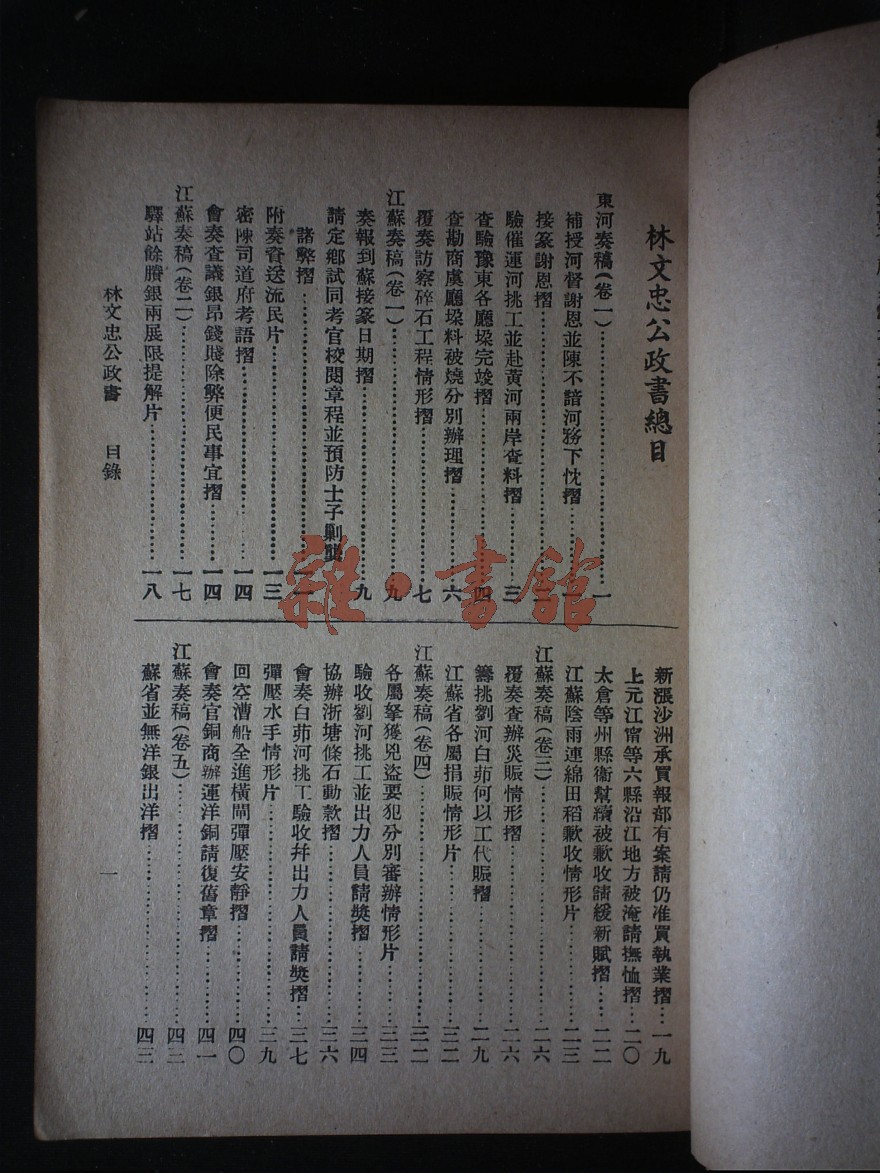 林文忠公政書總目
東河奏稿(卷一)……一
補授河督謝恩並陳不諳河務下忱摺……
接篆謝恩摺……
驗催運河挑工並赴黃河兩岸查料摺……三
查驗豫東各廳垜完竣摺……四
查勘商虞廳垜料被燒分別辦理摺……六
覆奏訪察碎石工程情形摺……七
江蘇奏稿(卷一)……九
奏報到蘇接篆日期摺……九
請定鄉試同考官校閱章程並預防士子剿襲
諸弊摺……
附奏資送流民片……一三
密陳司道府考語摺……一四
會奏查議銀昂錢賤除弊便民事宜摺……一四
江蘇奏稿(卷二)……一七
驛站餘賸銀兩展限提解片……一八
新漲沙洲承買報部有案請仍准買執業摺……一九
上元江甯等六縣沿江地方被淹請撫恤摺……二〇
太倉等州縣衛幫續被歉收請緩新賦摺……二二
江蘇陰雨連綿田稻歉收情形片……二三
江蘇奏稿(卷三)……二六
覆奏查辦災賑情形摺……二六
籌挑劉河白茆何以工代賑摺……二九
江蘇省各屬捐賑情形片……三二
江蘇奏稿(卷四)……三二
各屬拏獲兇盜要犯分別審辦情形片……三三
驗收劉河挑工並出力人員請獎摺……三四
協辦浙塘條石動款摺……三六
會奏白茆河挑工驗收幷出力人員請獎摺……三七
彈壓水手情形片……三九
回空漕船全進橫閘彈壓安靜摺……四〇
會奏官銅商辦運洋銅請復舊章摺……四一
江蘇奏稿(卷五)……四三
蘇省並無洋銀出洋摺……四三
林文忠公政書 目錄
一
雜·書館